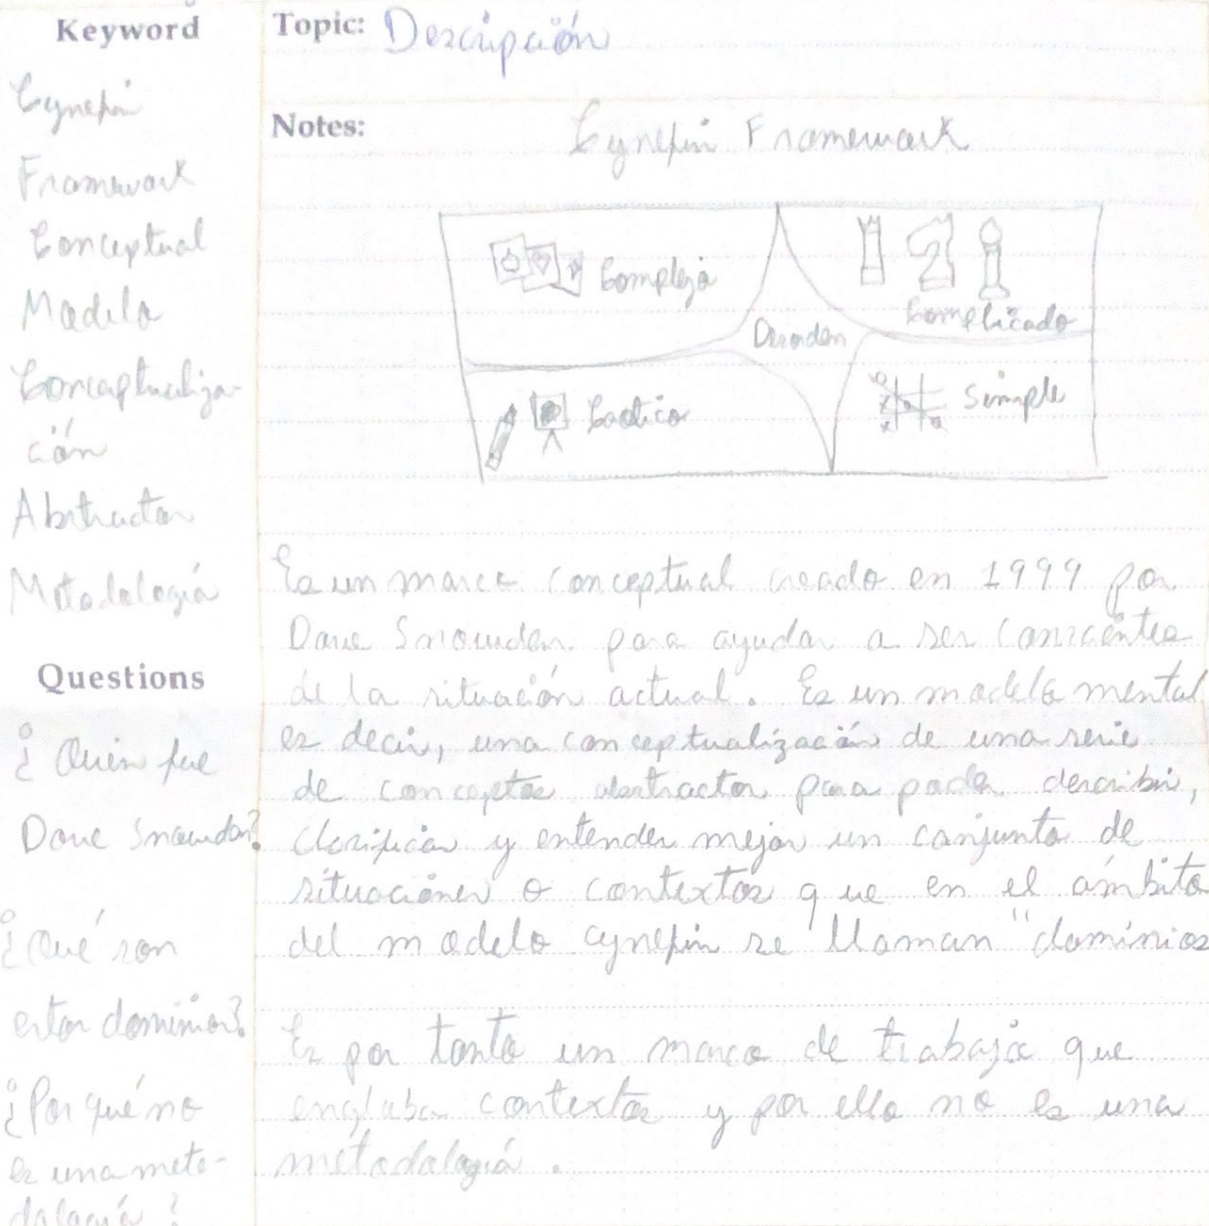 Keyword
Cynefin
Framework
Conceptual
Modelo
Conceptualiza-
ción
Abstractos
Metodología
Questions
¿Quién fue
Dave Snowden?
¿Qué son
estos dominios?
¿Por qué no
es una meto-
dología?
Topic: Descripción
Notes:
Cynefin Framework
Complejo
Complicado
Desorden
Caótico
Simple
Es un marco conceptual creado en 1999 por
Dave Snowden para ayudar a ser conscientes
de la situación actual. Es un modelo mental
es decir, una conceptualización de una serie
de conceptos abstractos para poder describir,
clarificar y entender mejor un conjunto de
situaciones o contextos que en el ámbito
del modelo cynefin se llaman "dominios
Es por tanto un marco de trabajo que
englaba contextos y por ello no es una
metodología.